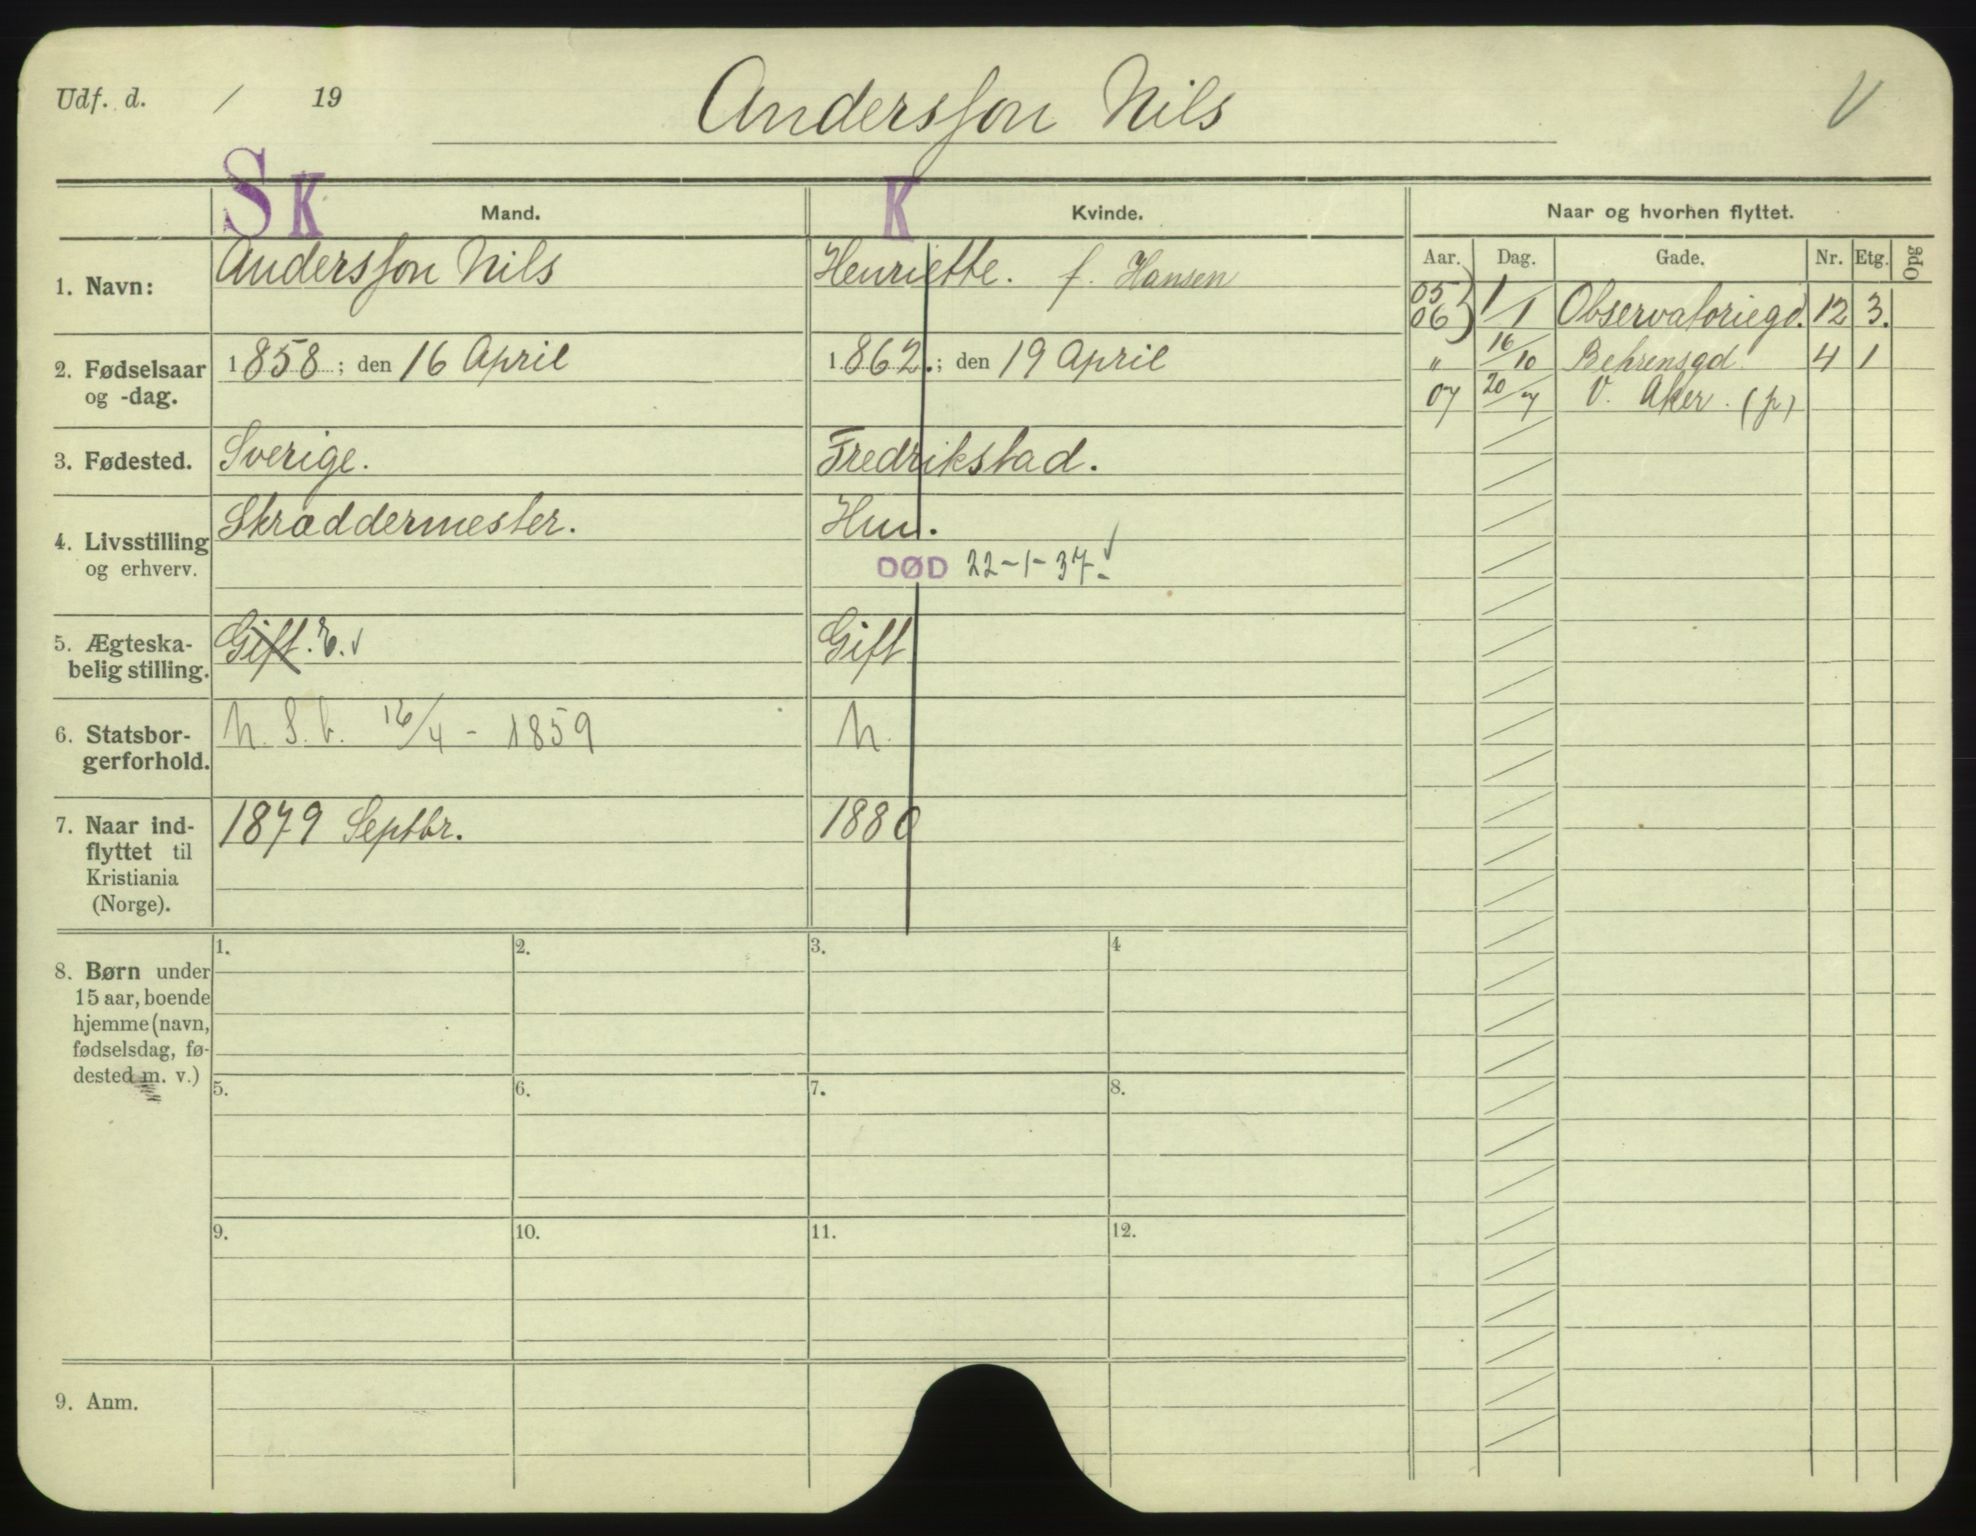 Udf. d. / 19
Andersson Nils
V
S K Mand.
K Kvinde.
Naar og hvorhen flyttet.
Aar. Dag. Gade. Nr. Etg. Opg
1. Navn: Andersson Nils
Henriette. f. Hansen
05
06 1/1 Observatoriegd. 12 3.
" 16/10 Behrensgd. 4 1
07 20/7 V. Aker. (p)
2. Fødselsaar og -dag.
1858; den 16 April
1862.; den 19 April
3. Fødested. Sverige.
Fredrikstad.
4. Livsstilling og erhverv.
Skræddermester.
Hun.
DØD 22-1-37.
5. Ægteska-
belig stilling.
Gift. E.
Gift
6. Statsbor-
gerforhold.
n. S. b. 16/4 - 1859
n.
7. Naar ind-
flyttet til
Kristiania
(Norge).
1879 Septbr.
1880
8. Børn under
15 aar, boende
hjemme (navn,
fødselsdag, fø-
dested m. v.)
1. 2. 3. 4
5. 6. 7. 8.
9. 10. 11. 12.
9. Anm.